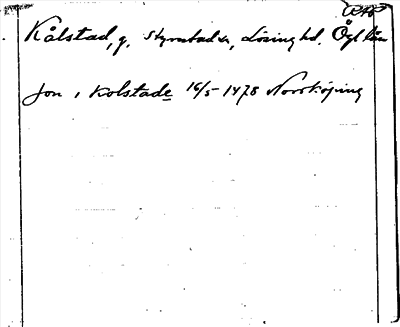 Kålstad, g. Styrestads sn, Lösings hd. Ögl län
Jon i Kolstade 16/5 1478 Norrköping